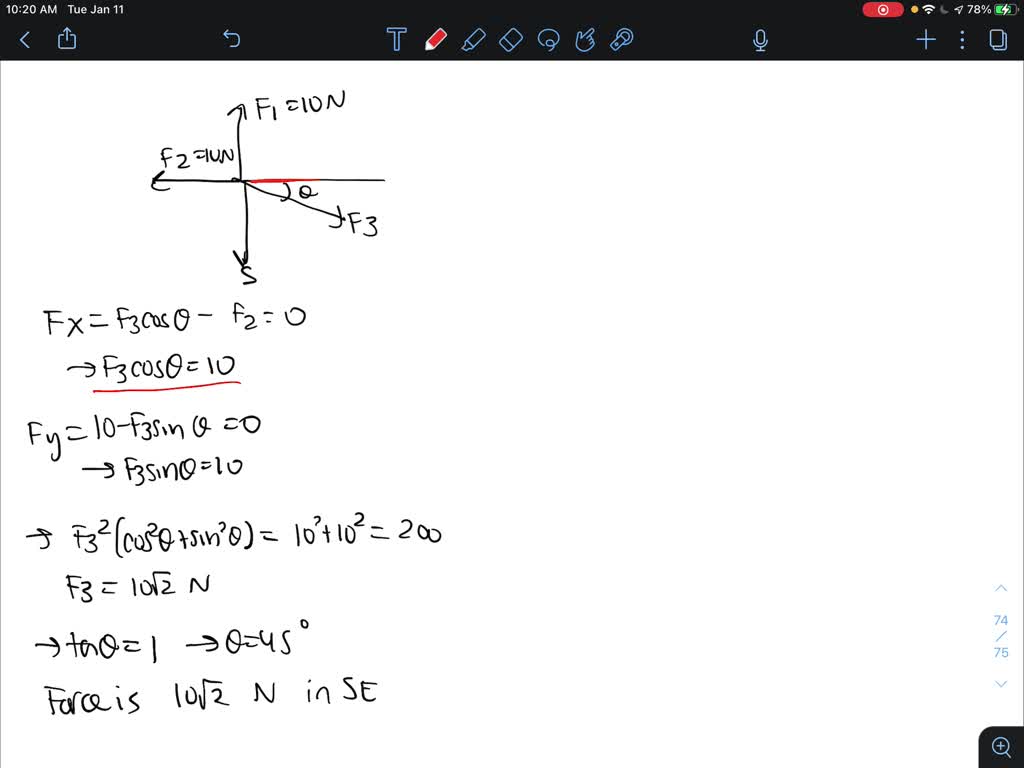 10:20 AM Tue Jan 11
78%
T
F1 = 10N
F2 = 10N
θ
F3
S
Fx = F3cosθ - F2 = 0
→ F3cosθ = 10
Fy = 10 - F3sin θ = 0
→ F3sinθ = 10
→ F3²(cos²θ + sin²θ) = 10² + 10² = 200
F3 = 10√2 N
→ tanθ = 1 → θ = 45°
Force is 10√2 N in SE
74
/
75